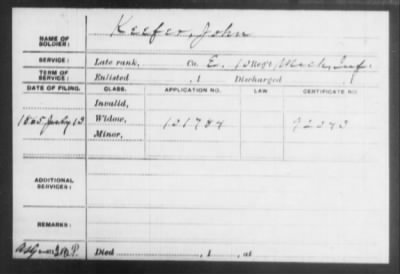 NAME OF SOLDIER: Keefer, John
SERVICE: Late rank, Co. E. Reg't Mich. Inf.
TERM OF SERVICE: Enlisted , 1 Discharged , 1
DATE OF FILING. CLASS. APPLICATION NO. LAW. CERTIFICATE NO.
Invalid,
1865 July 13 Widow, 131784 92343
Minor,
ADDITIONAL SERVICES:
REMARKS:
Died , 1 , at